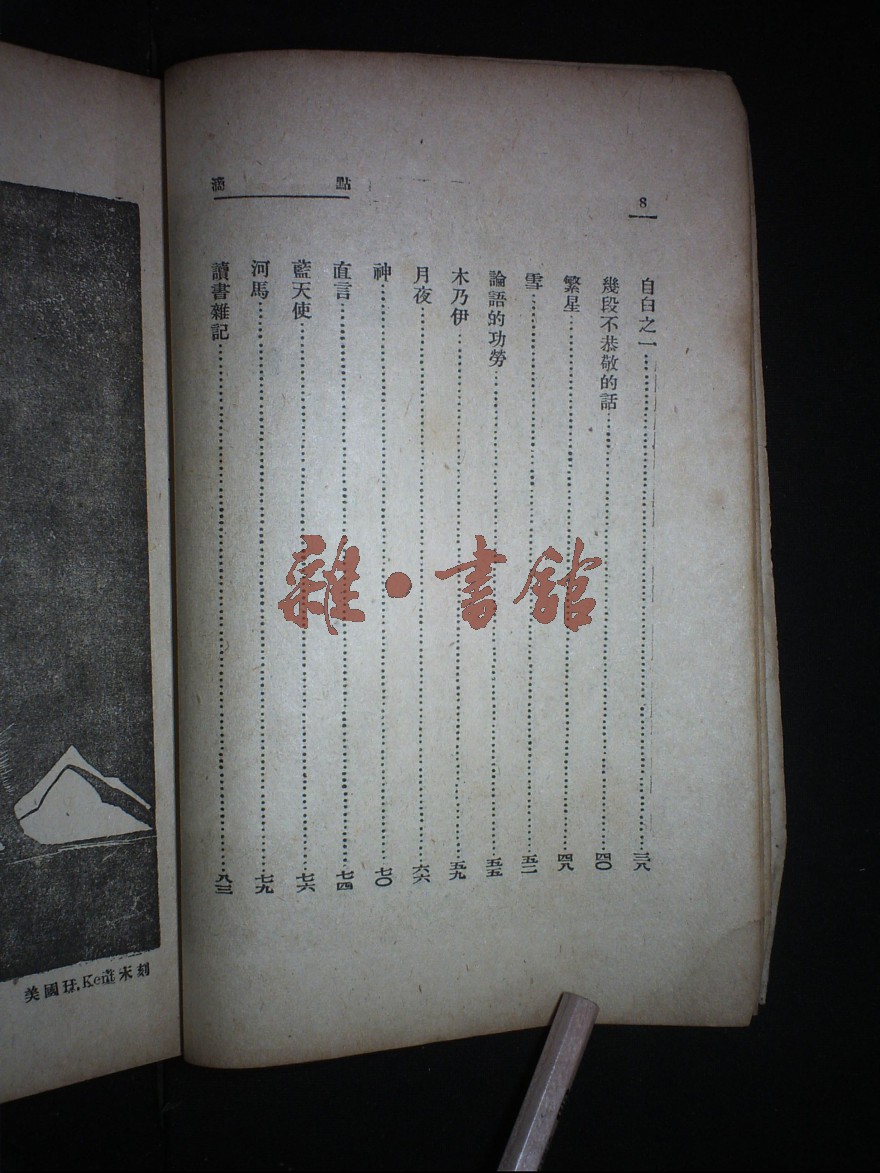 8
點滴
自白之一……三八
幾段不恭敬的話……四〇
繁星……四八
雪……五二
論語的功勞……五五
木乃伊……五九
月夜……六六
神……七〇
直言……七四
藍天使……七六
河馬……七九
讀書雜記……八三
美國R.Kent木刻
雜·書館